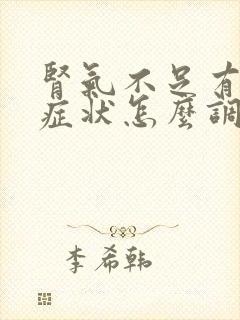 腎氣不足有
症狀怎麼調
李希韩